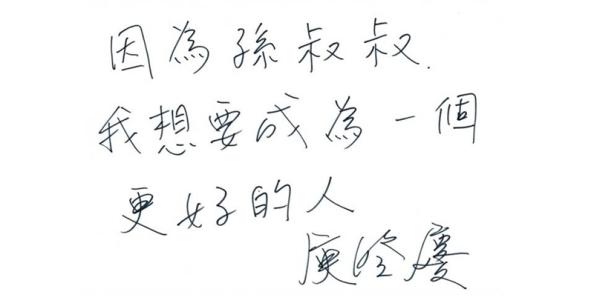 因為孫叔叔.
我想要成為一個
更好的人
庾澄慶